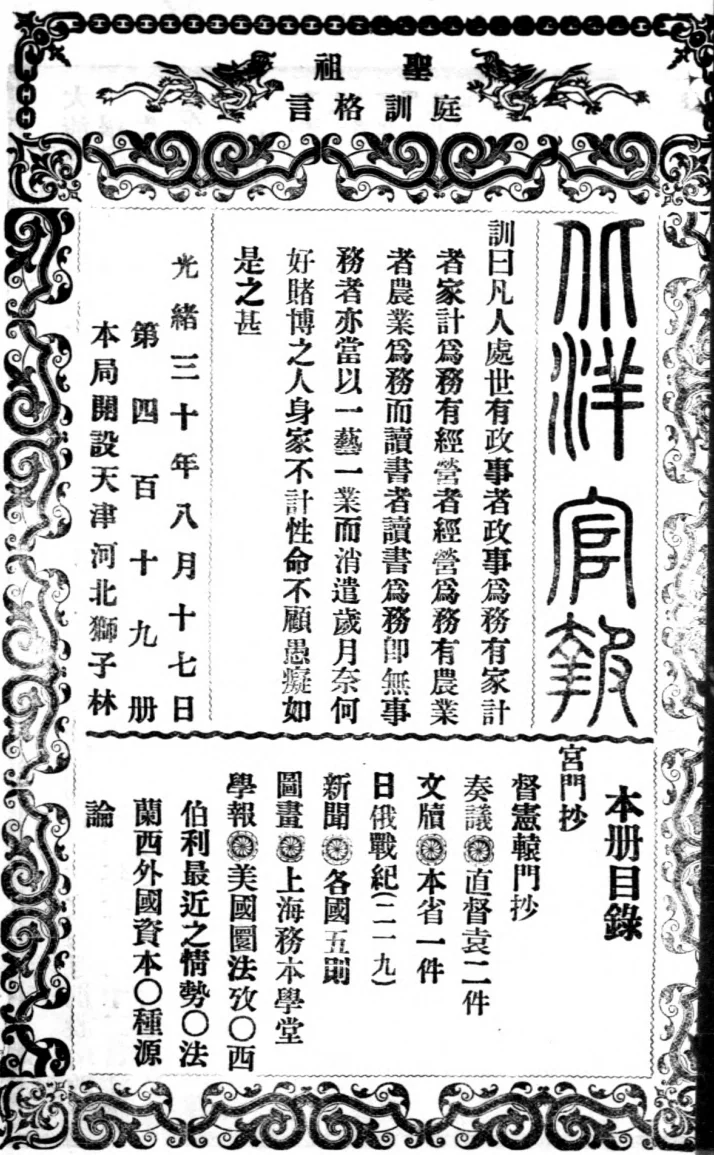 聖祖
庭訓格言
北洋官報
訓曰凡人處世有政事者政事爲務有家計
者家計爲務有經營者經營爲務有農業
者農業爲務而讀書者讀書爲務卽無事
務者亦當以一藝一業而消遣歲月奈何
好賭博之人身家不計性命不顧愚癡如
是之甚
光緒三十年八月十七日
第四百十九册
本局開設天津河北獅子林
本册目錄
宮門抄
督憲轅門抄
奏議◎直督袁二件
文牘◎本省一件
日俄戰紀(二一九)
新聞◎各國五則
圖畫◎上海務本學堂
學報◎美國圜法攷〇西
伯利最近之情勢〇法
蘭西外國資本〇種源
論